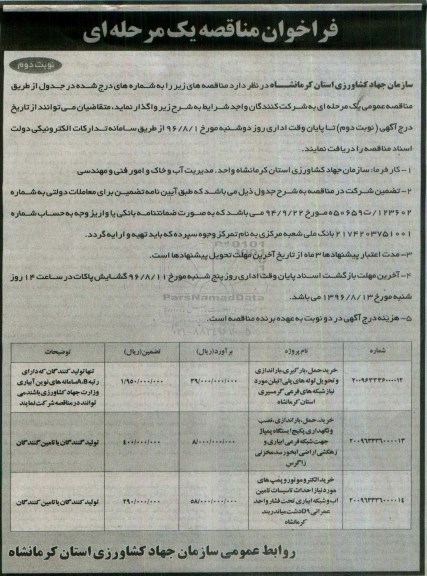 فراخوان مناقصه یک مرحله ای
نوبت دوم
سازمان جهاد کشاورزی استان کرمانشاه در نظر دارد مناقصه های زیر را به شماره های درج شده در جدول از طریق
مناقصه عمومی یک مرحله ای به شرکت کنندگان واجد شرایط به شرح زیر واگذار نماید، متقاضیان می توانند از تاریخ
درج آگهی ( نوبت دوم ) تا پایان وقت اداری روز دوشنبه مورخ ۹۶/۸/۱ از طریق سامانه تدارکات الکترونیکی دولت
اسناد مناقصه را دریافت نمایند.
۱- کارفرما: سازمان جهاد کشاورزی استان کرمانشاه واحد، مدیریت آب و خاک و امور فنی و مهندسی
۲- تضمین شرکت در مناقصه به شرح جدول ذیل می باشد که طبق آیین نامه تضمین برای معاملات دولتی به شماره
۱۲۳۴۰۲/ت۵۰۶۵۹ه مورخ ۹۴/۹/۲۲ می باشد که به صورت ضمانتنامه بانکی یا واریز وجه به حساب شماره
۲۱۷۴۲۰۳۷۵۱۰۰۱ بانک ملی شعبه مرکزی به نام تمرکز وجوه سپرده که باید تهیه و ارایه گردد.
۳- مدت اعتبار پیشنهادها ۳ ماه از تاریخ آخرین مهلت تحویل پیشنهادها است.
۴- آخرین مهلت بازگشت اسناد پایان وقت اداری روز پنج شنبه مورخ ۹۶/۸/۱۱ گشایش پاکات در ساعت ۱۴ روز
شنبه مورخ ۱۳۹۶/۸/۱۳ می باشد.
۵- هزینه درج آگهی در دو نوبت به عهده برنده مناقصه است.
ParsNamadData
شماره نام پروژه برآورد(ریال) تضمین(ریال) توضیحات
۲۰۰۹۶۳۳۳۶۰۰۰۰۱۲ خرید، حمل، بارگیری، باراندازی و تحویل لوله های پلی اتیلن مورد نیاز شبکه های فرعی گرمسیری استان کرمانشاه ۳۹/۰۰۰/۰۰۰/۰۰۰ ۱/۹۵۰/۰۰۰/۰۰۰ تنها تولید کنندگان که دارای رتبه A،B سامانه های نوین آبیاری وزارت جهاد کشاورزی باشند می توانند در مناقصه شرکت نمایند
۲۰۰۹۶۳۳۳۶۰۰۰۰۱۳ خرید، حمل، باراندازی، نصب و نگهداری پکیج ایستگاه پمپاژ جهت شبکه فرعی آبیاری و زهکشی اراضی آبخور سد مخزنی زاگرس ۸/۰۰۰/۰۰۰/۰۰۰ ۴۰۰/۰۰۰/۰۰۰ تولید کنندگان یا تامین کنندگان
۲۰۰۹۶۳۳۳۶۰۰۰۰۱۴ خرید الکتروموتور و پمپ های مورد نیاز احداث تاسیسات تامین آب و شبکه آبیاری تحت فشار واحد عمرانی D9 دشت میاندربند کرمانشاه ۵۸/۰۰۰/۰۰۰/۰۰۰ ۲۹۰/۰۰۰/۰۰۰ تولید کنندگان یا تامین کنندگان
روابط عمومی سازمان جهاد کشاورزی استان کرمانشاه